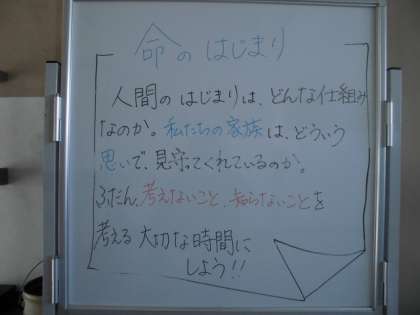 命のはじまり
人間のはじまりは、どんな仕組み
なのか。私たちの家族は、どういう
思いで、見守ってくれているのか。
ふだん、考えないこと、知らないことを
考える大切な時間に
しよう!!